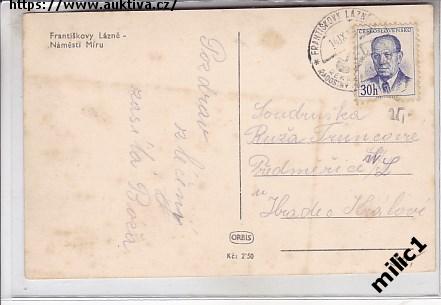 https://www.auktiva.cz/
Františkovy Lázně -
Náměstí Míru
Pozdrav
z léčení
zasílá Boža
FRANTIŠKOVY LÁZNĚ
ČESKOSLOVENSKO
30h
Soudružka
Ruža Truncova
Předměřice n/L
u
Hradec Králové
ORBIS
Kčs 2'50
milic1